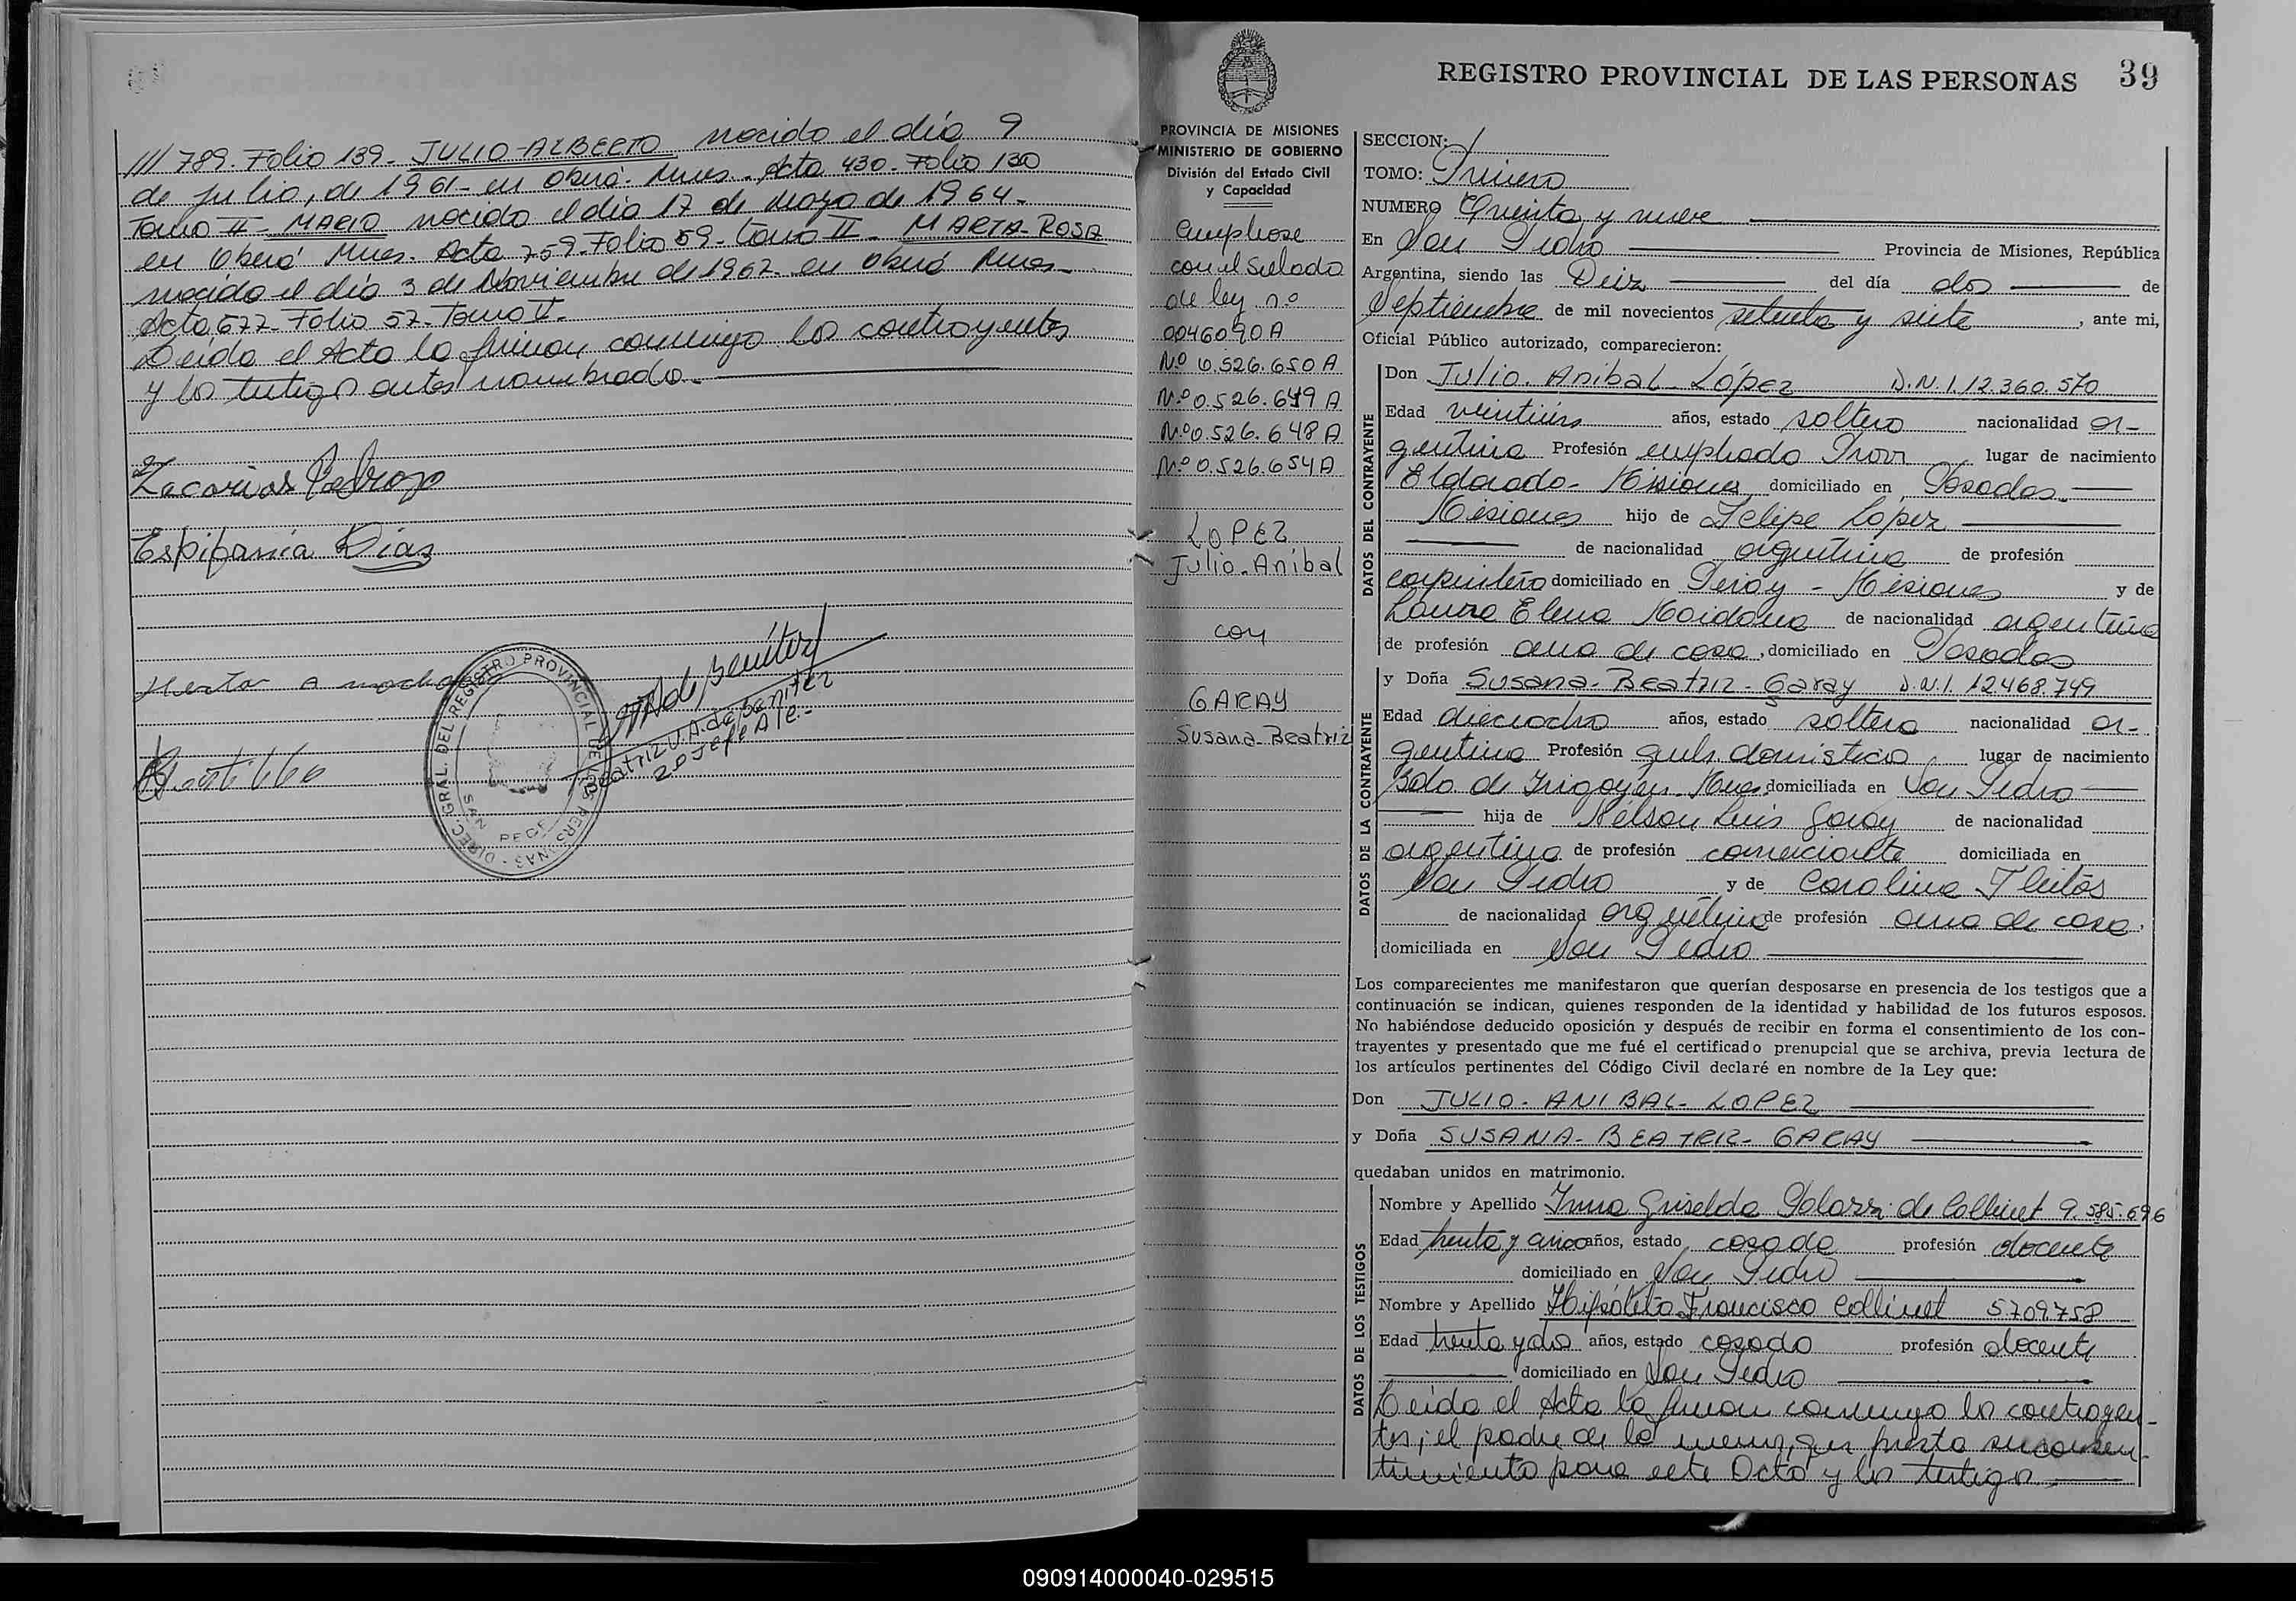 /// 789. Folio 139- JULIO-ALBERTO nacido el día 9
de Julio, de 1961- en Oberá. Mnes. Acta 430. Folio 130
Tomo II- MARIO nacido el día 17 de mayo de 1964-
en Oberá Mnes. Acta 759. Folio 59- Tomo II- MARTA-ROSA
nacida el día 3 de Noviembre de 1967. en Oberá Mnes-
Acta 677- Folio 57- Tomo II-
Leida el Acta la firman conmigo los contrayentes
y los testigos antes nombrados-
Zacarias Pedrozo
Espifania Dias
Hector A
DIREC. GRAL. DEL REGISTRO PROVINCIAL DE LAS PERSONAS
SAN PEDRO
A de Benitez
Beatriz V. A. de Benitez
2º Jefe
REGISTRO PROVINCIAL DE LAS PERSONAS 39
PROVINCIA DE MISIONES
MINISTERIO DE GOBIERNO
División del Estado Civil
y Capacidad
Cumplase
con el Sellado
de ley nº
0046090A
Nº 0.526.650A
Nº 0.526.649A
Nº 0.526.648A
Nº 0.526.654A
LOPEZ
Julio-Anibal
con
GARAY
Susana-Beatriz
SECCION:
TOMO: Primero
NUMERO Treinta y nueve
En San Pedro Provincia de Misiones, República
Argentina, siendo las Diez del día dos de
Septiembre de mil novecientos setenta y siete, ante mi,
Oficial Público autorizado, comparecieron:
DATOS DEL CONTRAYENTE
Don Julio-Anibal-López D.N.I. 12.360.570
Edad veintiún años, estado soltero nacionalidad ar-
gentina Profesión empleado Prov. lugar de nacimiento
Eldorado- Misiones domiciliado en Posadas-
Misiones hijo de Felipe Lopez
de nacionalidad argentina de profesión
carpintero domiciliado en Garay - Misiones y de
Laura Elena Maidana de nacionalidad argentina
de profesión ama de casa, domiciliado en Posadas
DATOS DE LA CONTRAYENTE
y Doña Susana-Beatriz-Garay D.N.I. 12.468.749
Edad dieciocho años, estado soltera nacionalidad ar-
gentina Profesión queh. domésticos lugar de nacimiento
Bdo de Irigoyen-Mnes domiciliada en San Pedro
hija de Nélson Luis Garay de nacionalidad
argentina de profesión comerciante domiciliada en
San Pedro y de Carolina Fleitas
de nacionalidad argentina de profesión ama de casa,
domiciliada en San Pedro
Los comparecientes me manifestaron que querían desposarse en presencia de los testigos que a
continuación se indican, quienes responden de la identidad y habilidad de los futuros esposos.
No habiéndose deducido oposición y después de recibir en forma el consentimiento de los con-
trayentes y presentado que me fué el certificado prenupcial que se archiva, previa lectura de
los artículos pertinentes del Código Civil declaré en nombre de la Ley que:
Don JULIO-ANIBAL-LOPEZ
y Doña SUSANA-BEATRIZ-GARAY
quedaban unidos en matrimonio.
DATOS DE LOS TESTIGOS
Nombre y Apellido Irma Griselda de Collinet 9.585.696
Edad treinta y cinco años, estado casada profesión docente
domiciliado en San Pedro
Nombre y Apellido Hipólito Francisco Collinet 5.709.758
Edad treinta y dos años, estado casado profesión docente
domiciliado en San Pedro
Leida el Acta la firman conmigo los contrayen-
tes, el padre de la menor, que presta su consen-
timiento para este Acto y los testigos-
090914000040-029515